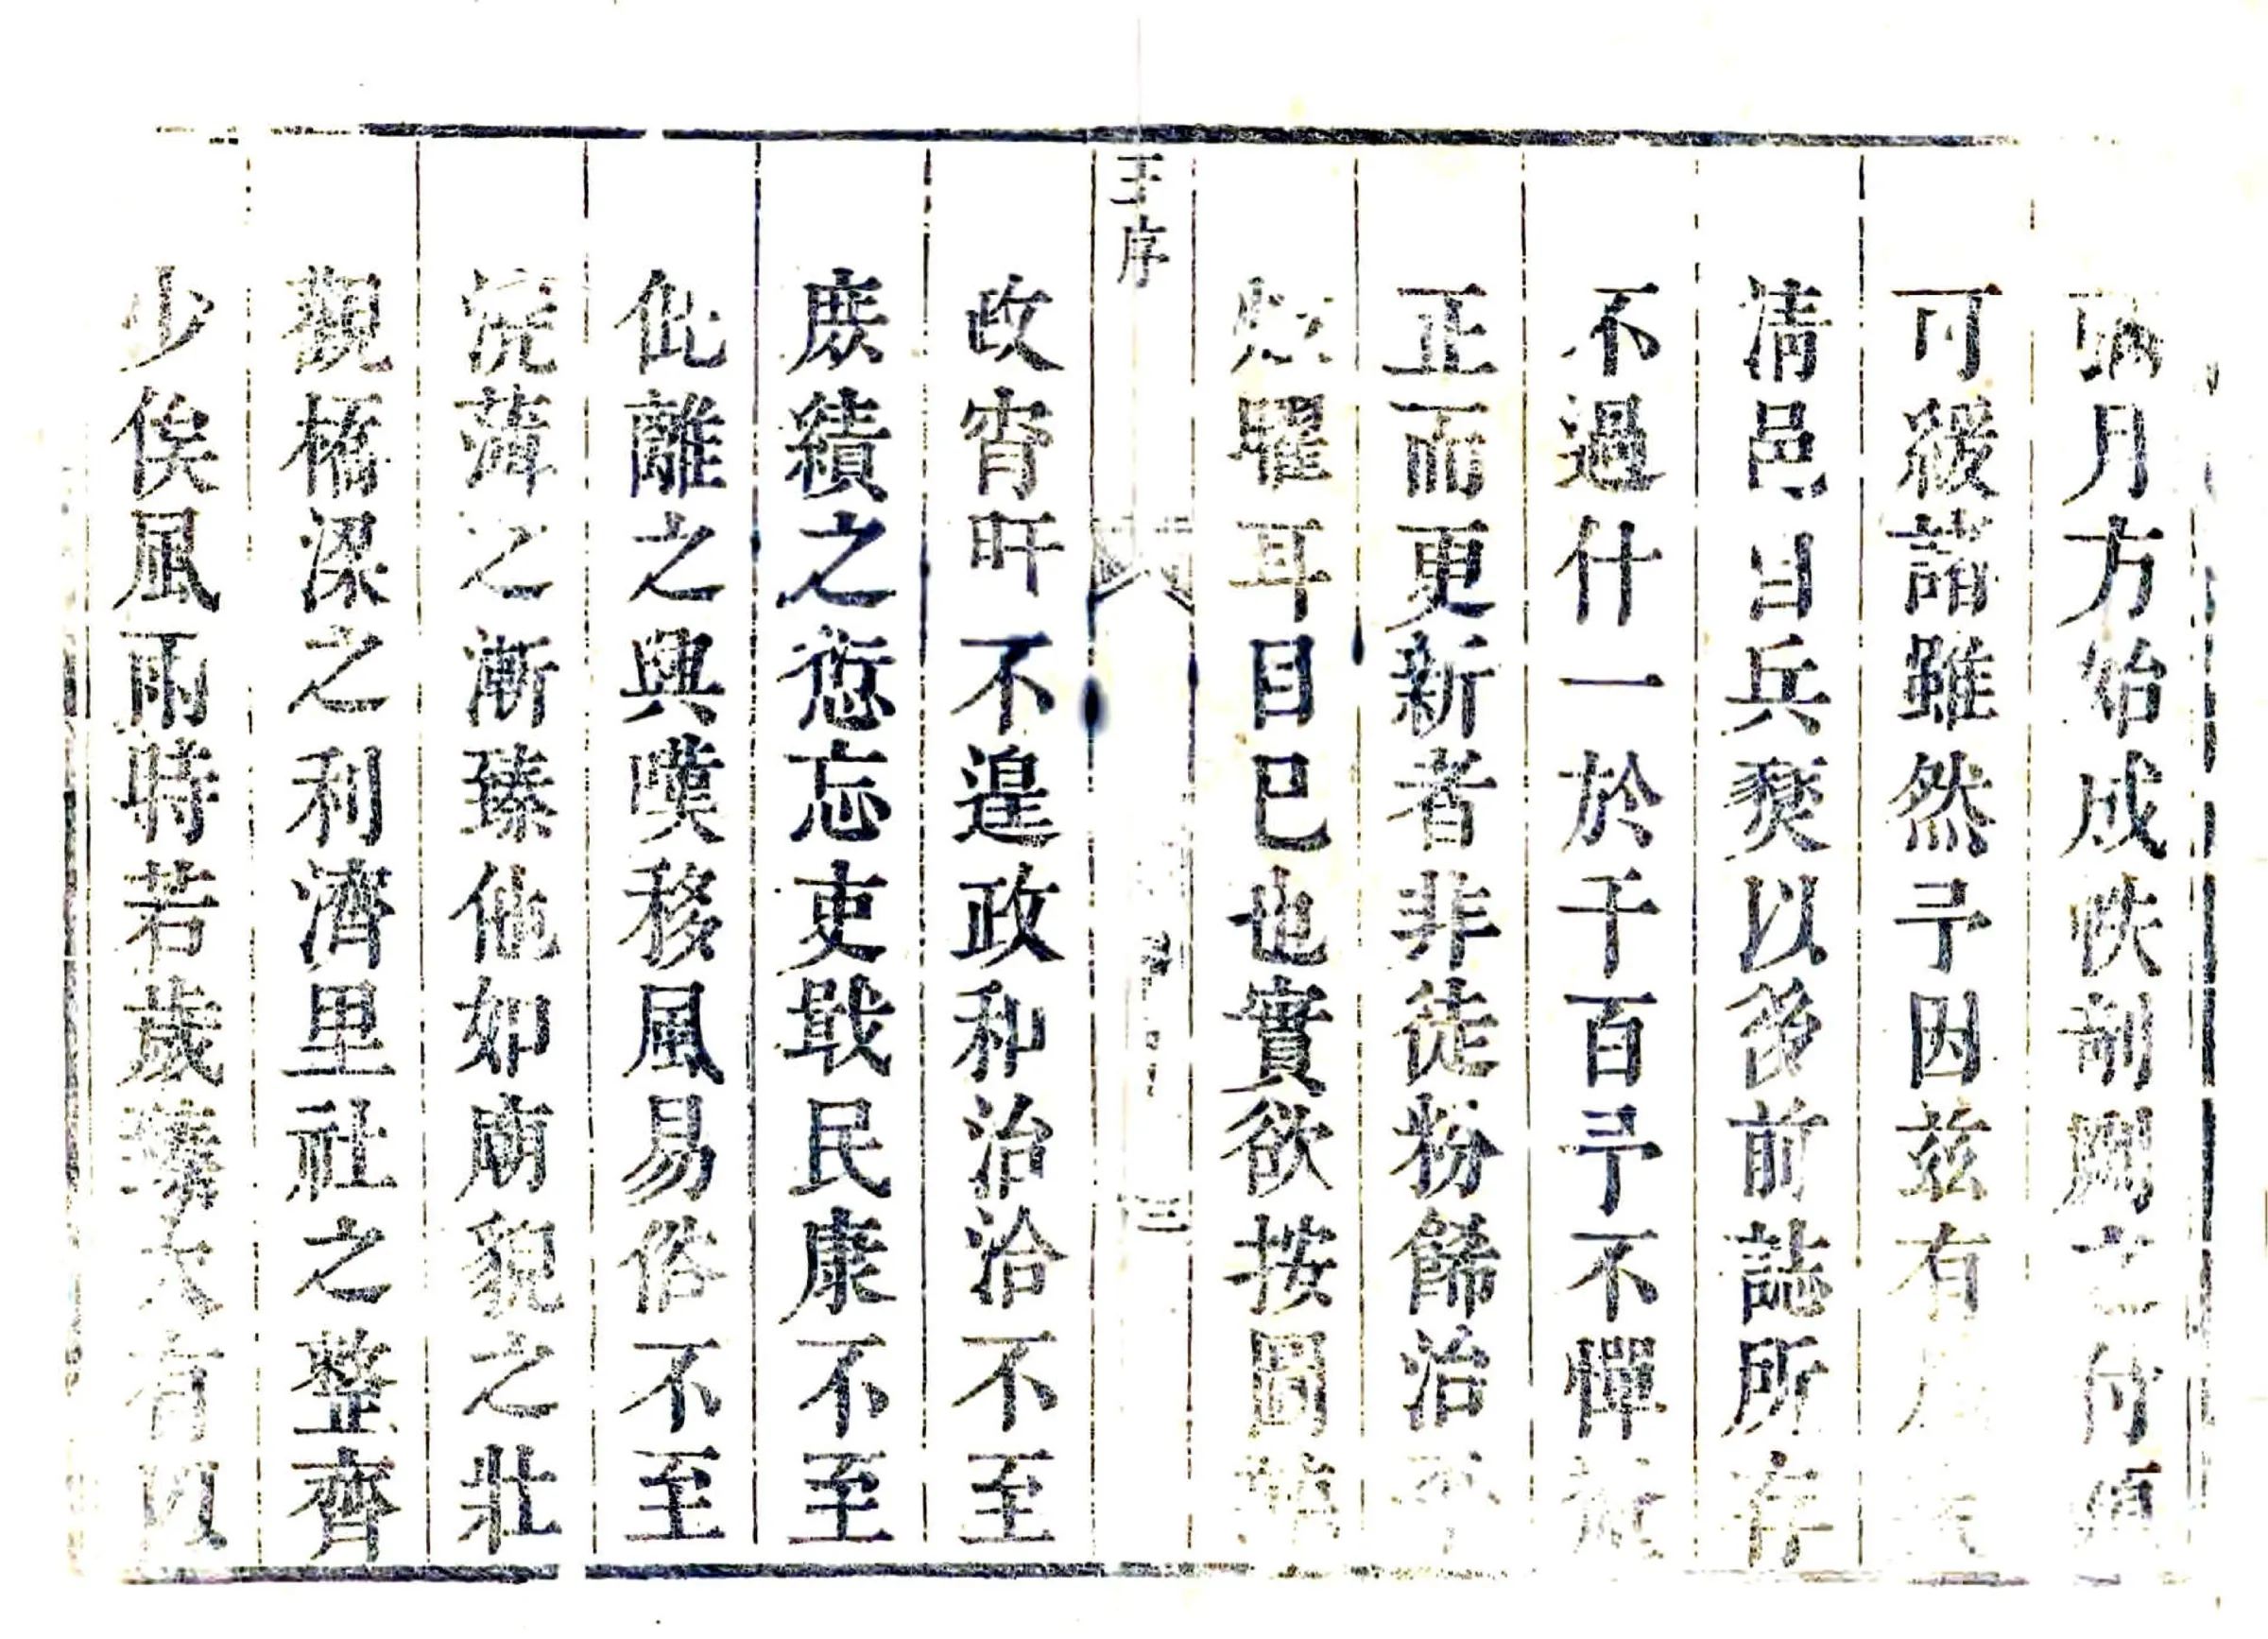 月方始成帙剞劂之付
可緩諸雖然予因茲有
清邑自兵燹以後前誌所存
不過什一於千百予不憚
正而更新者非徒粉餙治
耀耳目已也實欲按圖
王序
三
政宵旰不遑政和治洽不至
庶績之愆忘吏戢民康不至
仳離之興嘆移風易俗不至
澆薄之漸臻他如廟貌之壯
觀橋梁之利濟里社之整齊
少俟風雨時若歲臻大有以